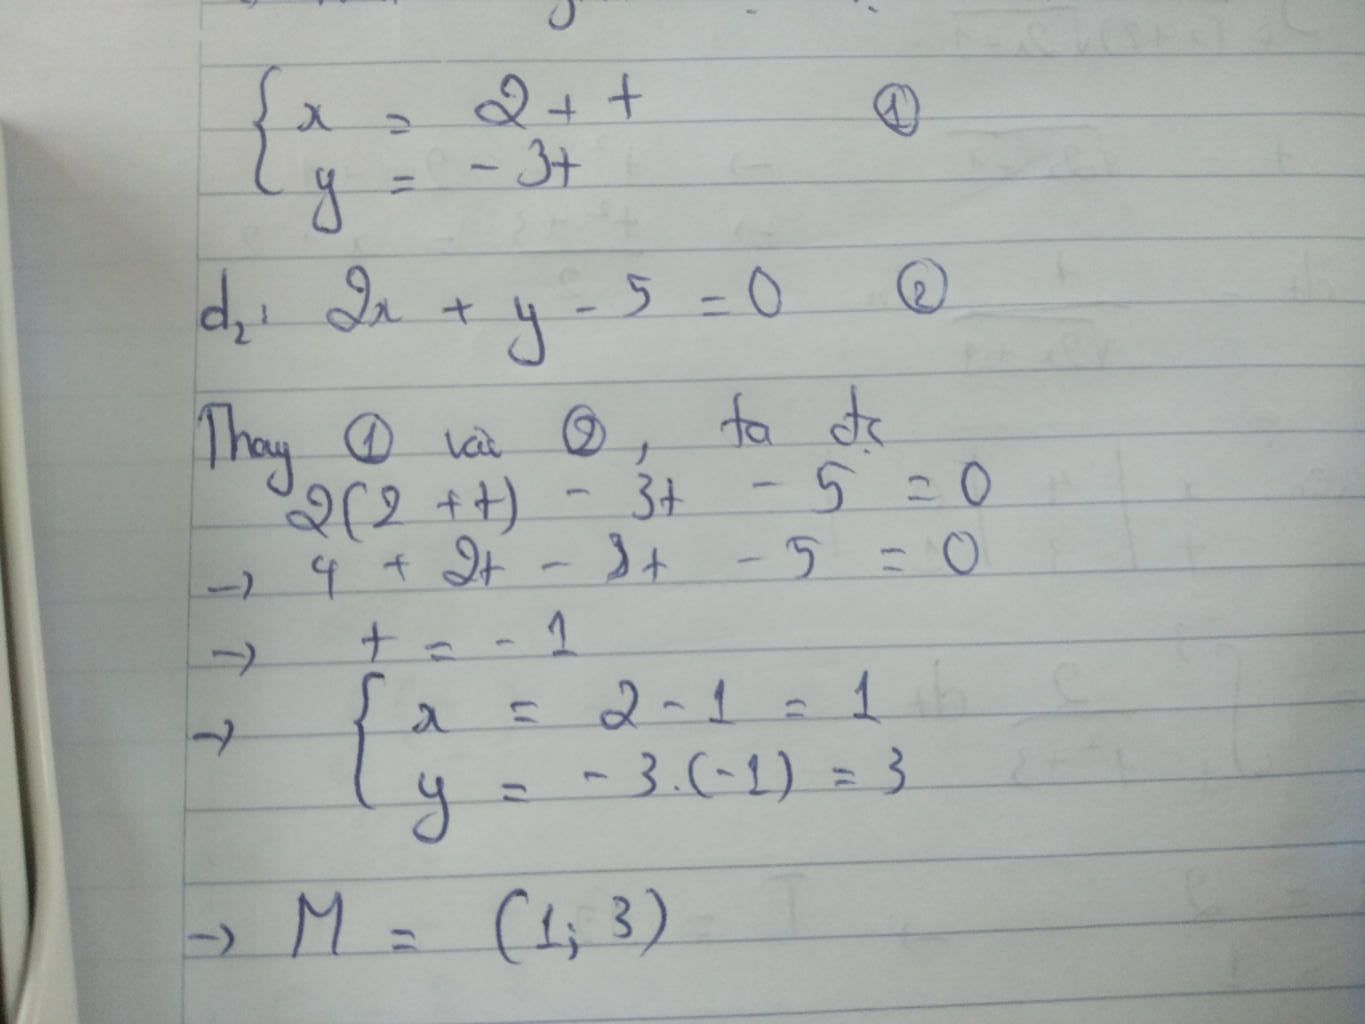 { x = 2 + t ①
y = -3t
d₂: 2x + y - 5 = 0 ②
Thay ① vào ②, ta đc
2(2 + t) - 3t - 5 = 0
→ 4 + 2t - 3t - 5 = 0
→ t = -1
→ { x = 2 - 1 = 1
y = -3.(-1) = 3
→ M = (1; 3)